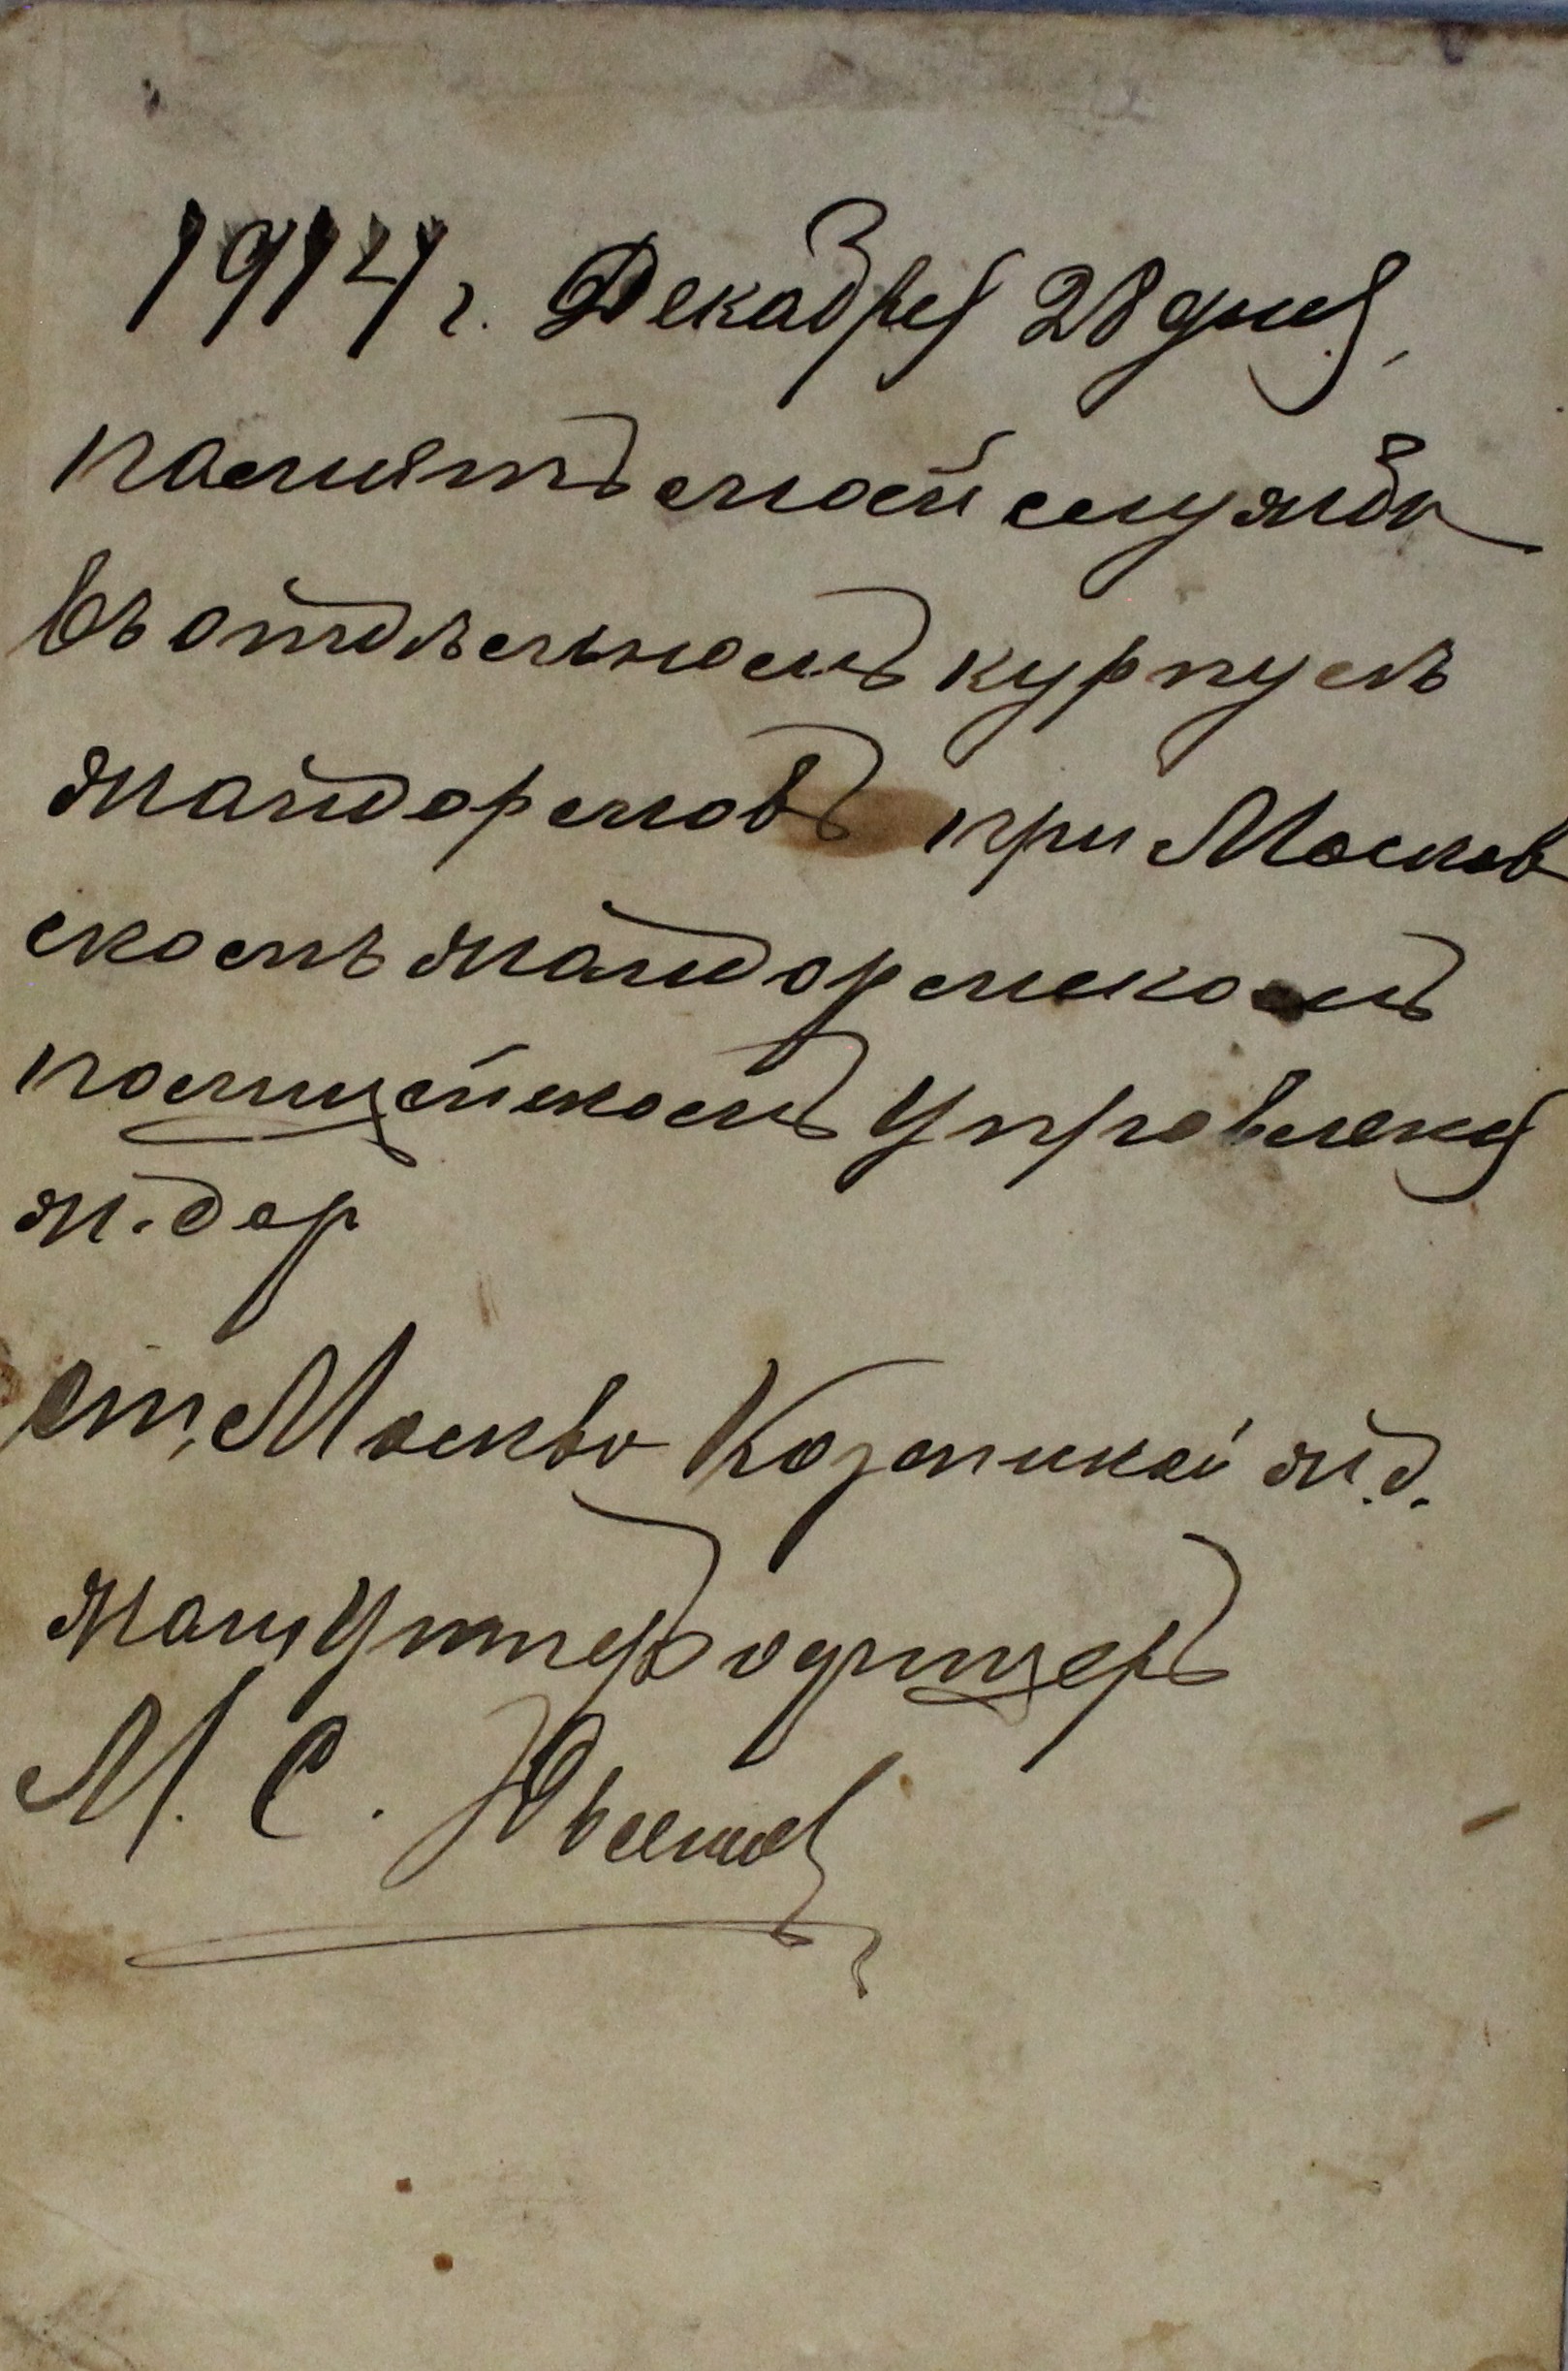 1914 г. Декабря 28 дня,
памятъ моей службы
въ отдѣльномъ курпусѣ
жандормовъ при Москов
скомъ жандормскомъ
полицейскомъ Управлен
ж. дор
ст, Москвы Казанской ж.д.
жан, Унтеръ офицеръ
М. С.